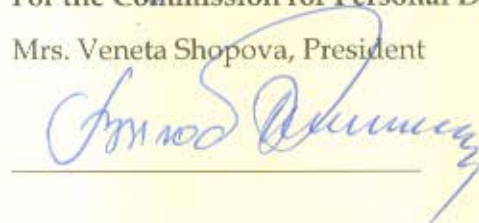 For the Commission for Personal D
Mrs. Veneta Shopova, President